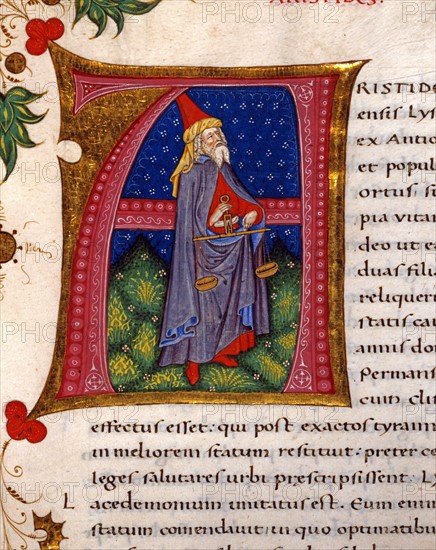 ARISTIDES.
RISTIDE
ensis Lys
ex Antio
et popul
ortus si
pia vitar
deo ut ea
duas filia
reliquer
statis ca
annis do
Perman
cum cli
effectus esset: qui post exactos tyrann
in meliorem statum restitut: preter ce
leges salutares urbi prescripsissent. Ly
Lacedemonium imitatus est. Cum enim
statum comendavit: in quo optimatibu